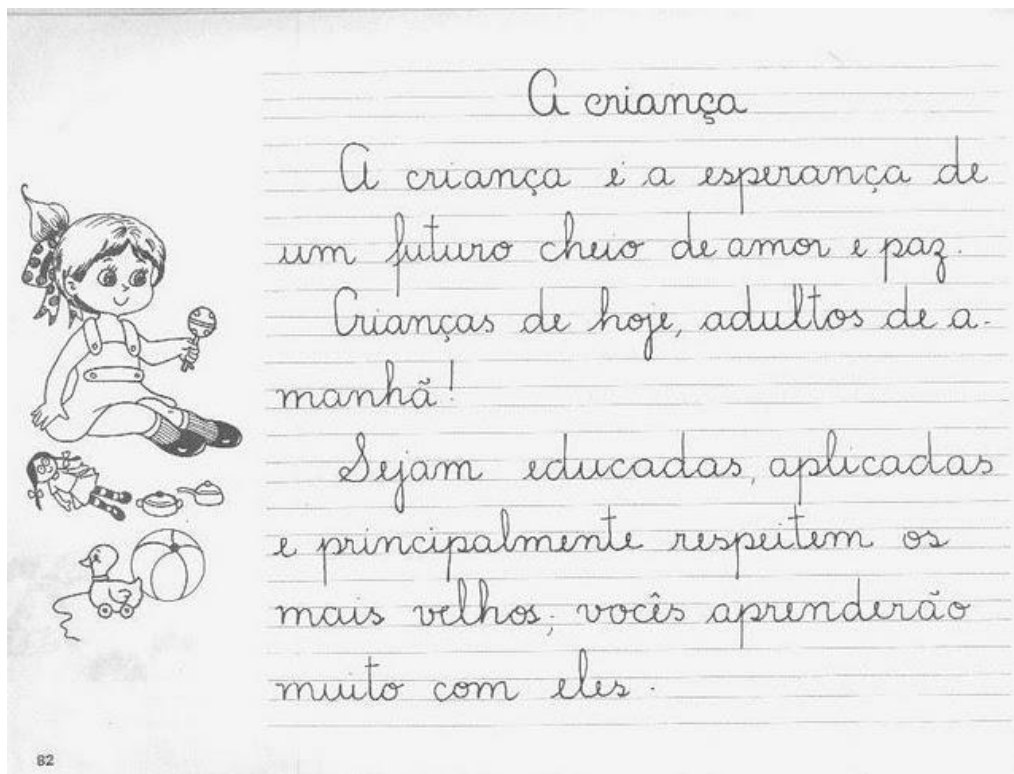 A criança
A criança é a esperança de
um futuro cheio de amor e paz.
Crianças de hoje, adultos de a-
manhã!
Sejam educadas, aplicadas
e principalmente respeitem os
mais velhos; vocês aprenderão
muito com eles.
82